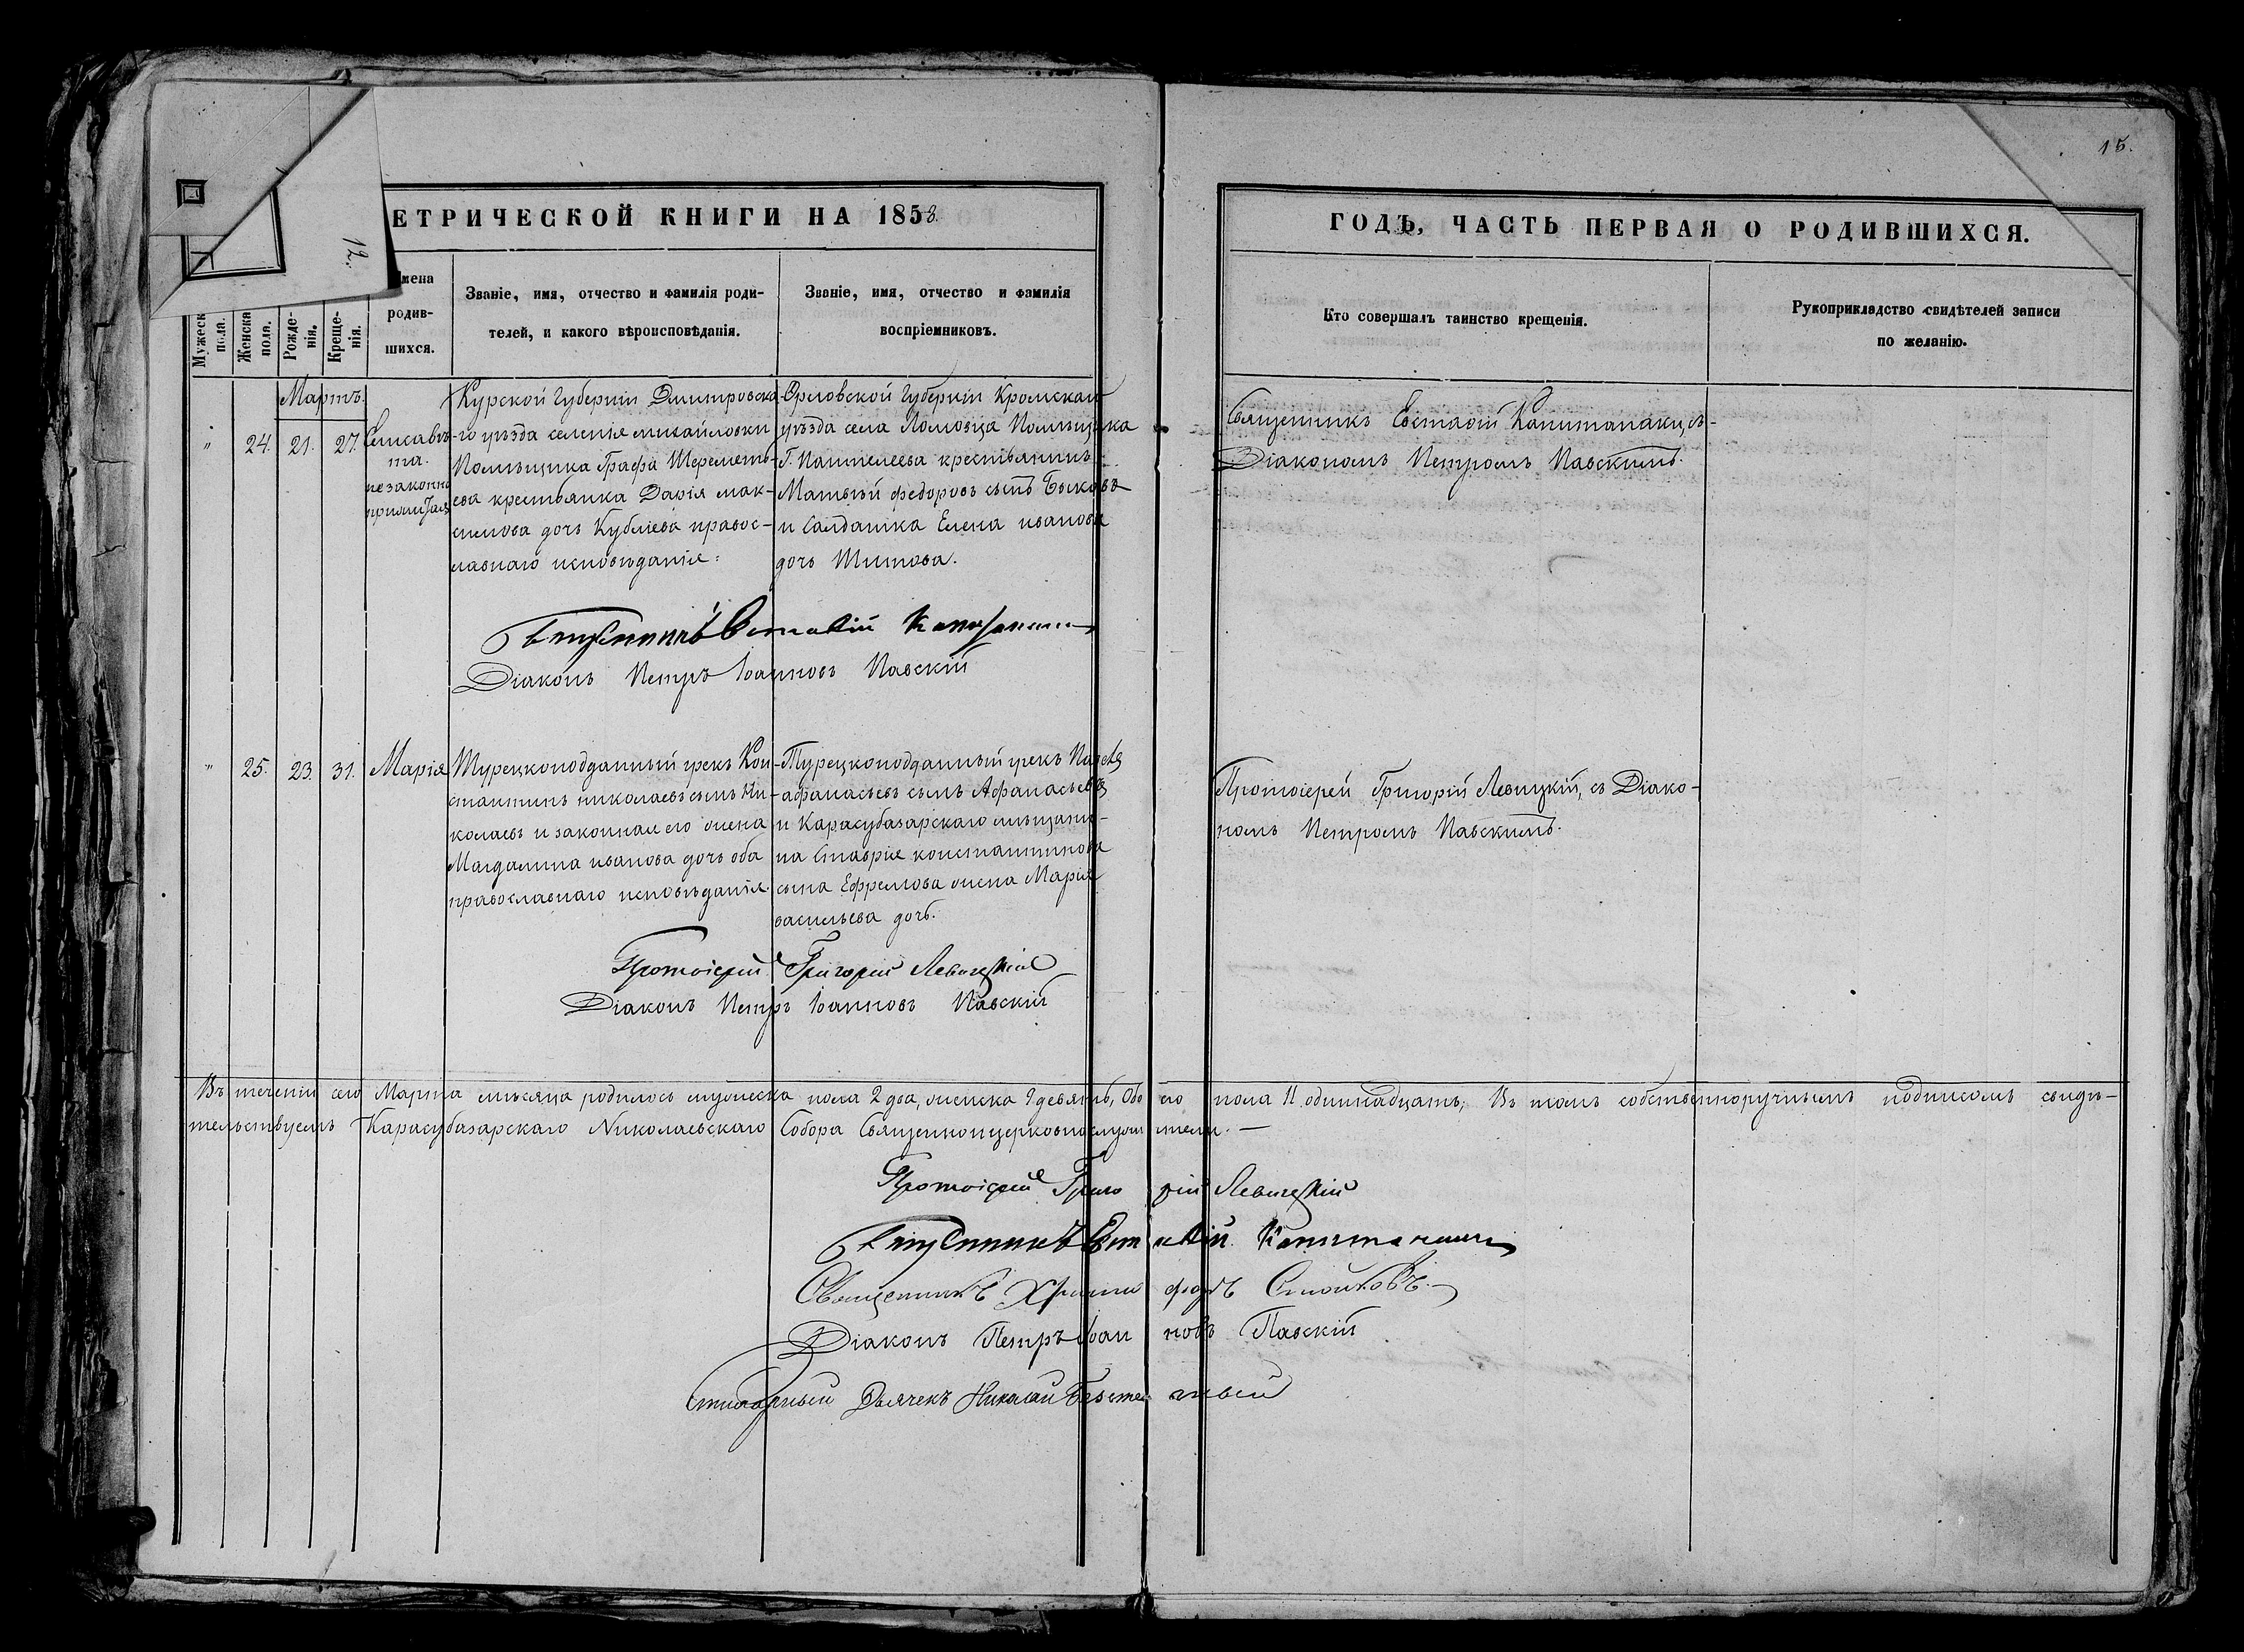 15.
12.
ЕТРИЧЕСКОЙ КНИГИ НА 1858.
ГОДЪ, ЧАСТЬ ПЕРВАЯ О РОДИВШИХСЯ.
Мужеск
пола.
Женска
пола.
Рожде-
нія.
Креще-
нія.
мена
родив-
шихся.
Званіе, имя, отчество и фамилія роди-
телей, и какого вѣроисповѣданія.
Званіе, имя, отчество и фамилія
воспріемниковъ.
Кто совершалъ таинство крещенія.
Рукоприкладство свидѣтелей записи
по желанію.
Мартъ.
" 24. 21. 27.
Елисаве-
та.
незаконно
Курской Губерніи Дмитровска-
го уѣзда селенія михайловки
Помѣщика Графа Шереметь-
ева крестьянка Дарія мак-
симова дочь Кублиева правос-
лавнаго исповѣданія:
Орловской Губерніи Кромскаго
уѣзда села Ломовца Помѣщика
Г. Пантелеева крестьянинъ
Матвѣй федоровъ сынъ Быковъ
и Салдатка Елена иванова
дочь Титова.
Священникъ Евстафій Капитанаки, съ
Діакономъ Петромъ Павскимъ.
Священникъ Евстафій Капитанаки
Діаконъ Петръ Іоанновъ Павскій
" 25. 23. 31. Марія
Турецкоподданный грекъ Кон-
стантинъ николаевъ сынъ Ни-
колаевъ и законная его жена
Магдалина иванова дочь оба
православнаго исповѣданія.
Турецкоподданный грекъ
афанасьевъ сынъ Афанасьевъ
и Карасубазарскаго мѣщани-
на Ставрія константинова
сына Ефремова жена Марія
васильева дочь.
Протоіерей Григорій Левицкій, съ Діако-
номъ Петромъ Павскимъ.
Протоіерей Григорій Левицкій
Діаконъ Петръ Іоанновъ Павскій
Въ теченіи сего Марта мѣсяца родилось мужеска пола 2 два, женска 9 девять, Обоего пола 11 одиннадцать; Въ томъ собственноручнымъ подписомъ свидѣ-
тельствуемъ Карасубазарскаго Николаевскаго Собора Священноицерковнослужители. —
Протоіерей Григорій Левицкій
Священникъ Евстафій Капитанаки
Священникъ Христофоръ Стойковъ.
Діаконъ Петръ Іоанновъ Павскій
Стихарный Дьячекъ Николай